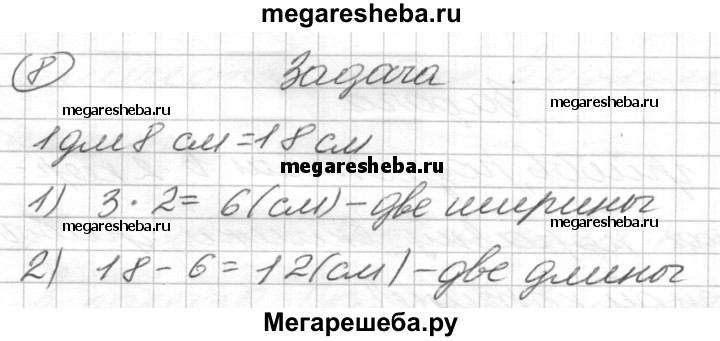 megaresheba.ru
8 Задача
megaresheba.ru megaresheba.ru
1 дм 8 см = 18 см
megaresheba.ru
1) 3 · 2 = 6 (см) - две ширины
megaresheba.ru megaresheba.ru
2) 18 - 6 = 12 (см) - две длины
Мегарешеба.ру